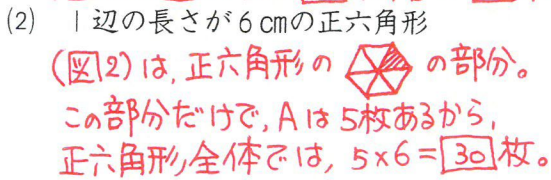 (2) 1辺の長さが6cmの正六角形
(図2)は,正六角形の の部分。
この部分だけで,Aは5枚あるから,
正六角形全体では,5×6=30枚。